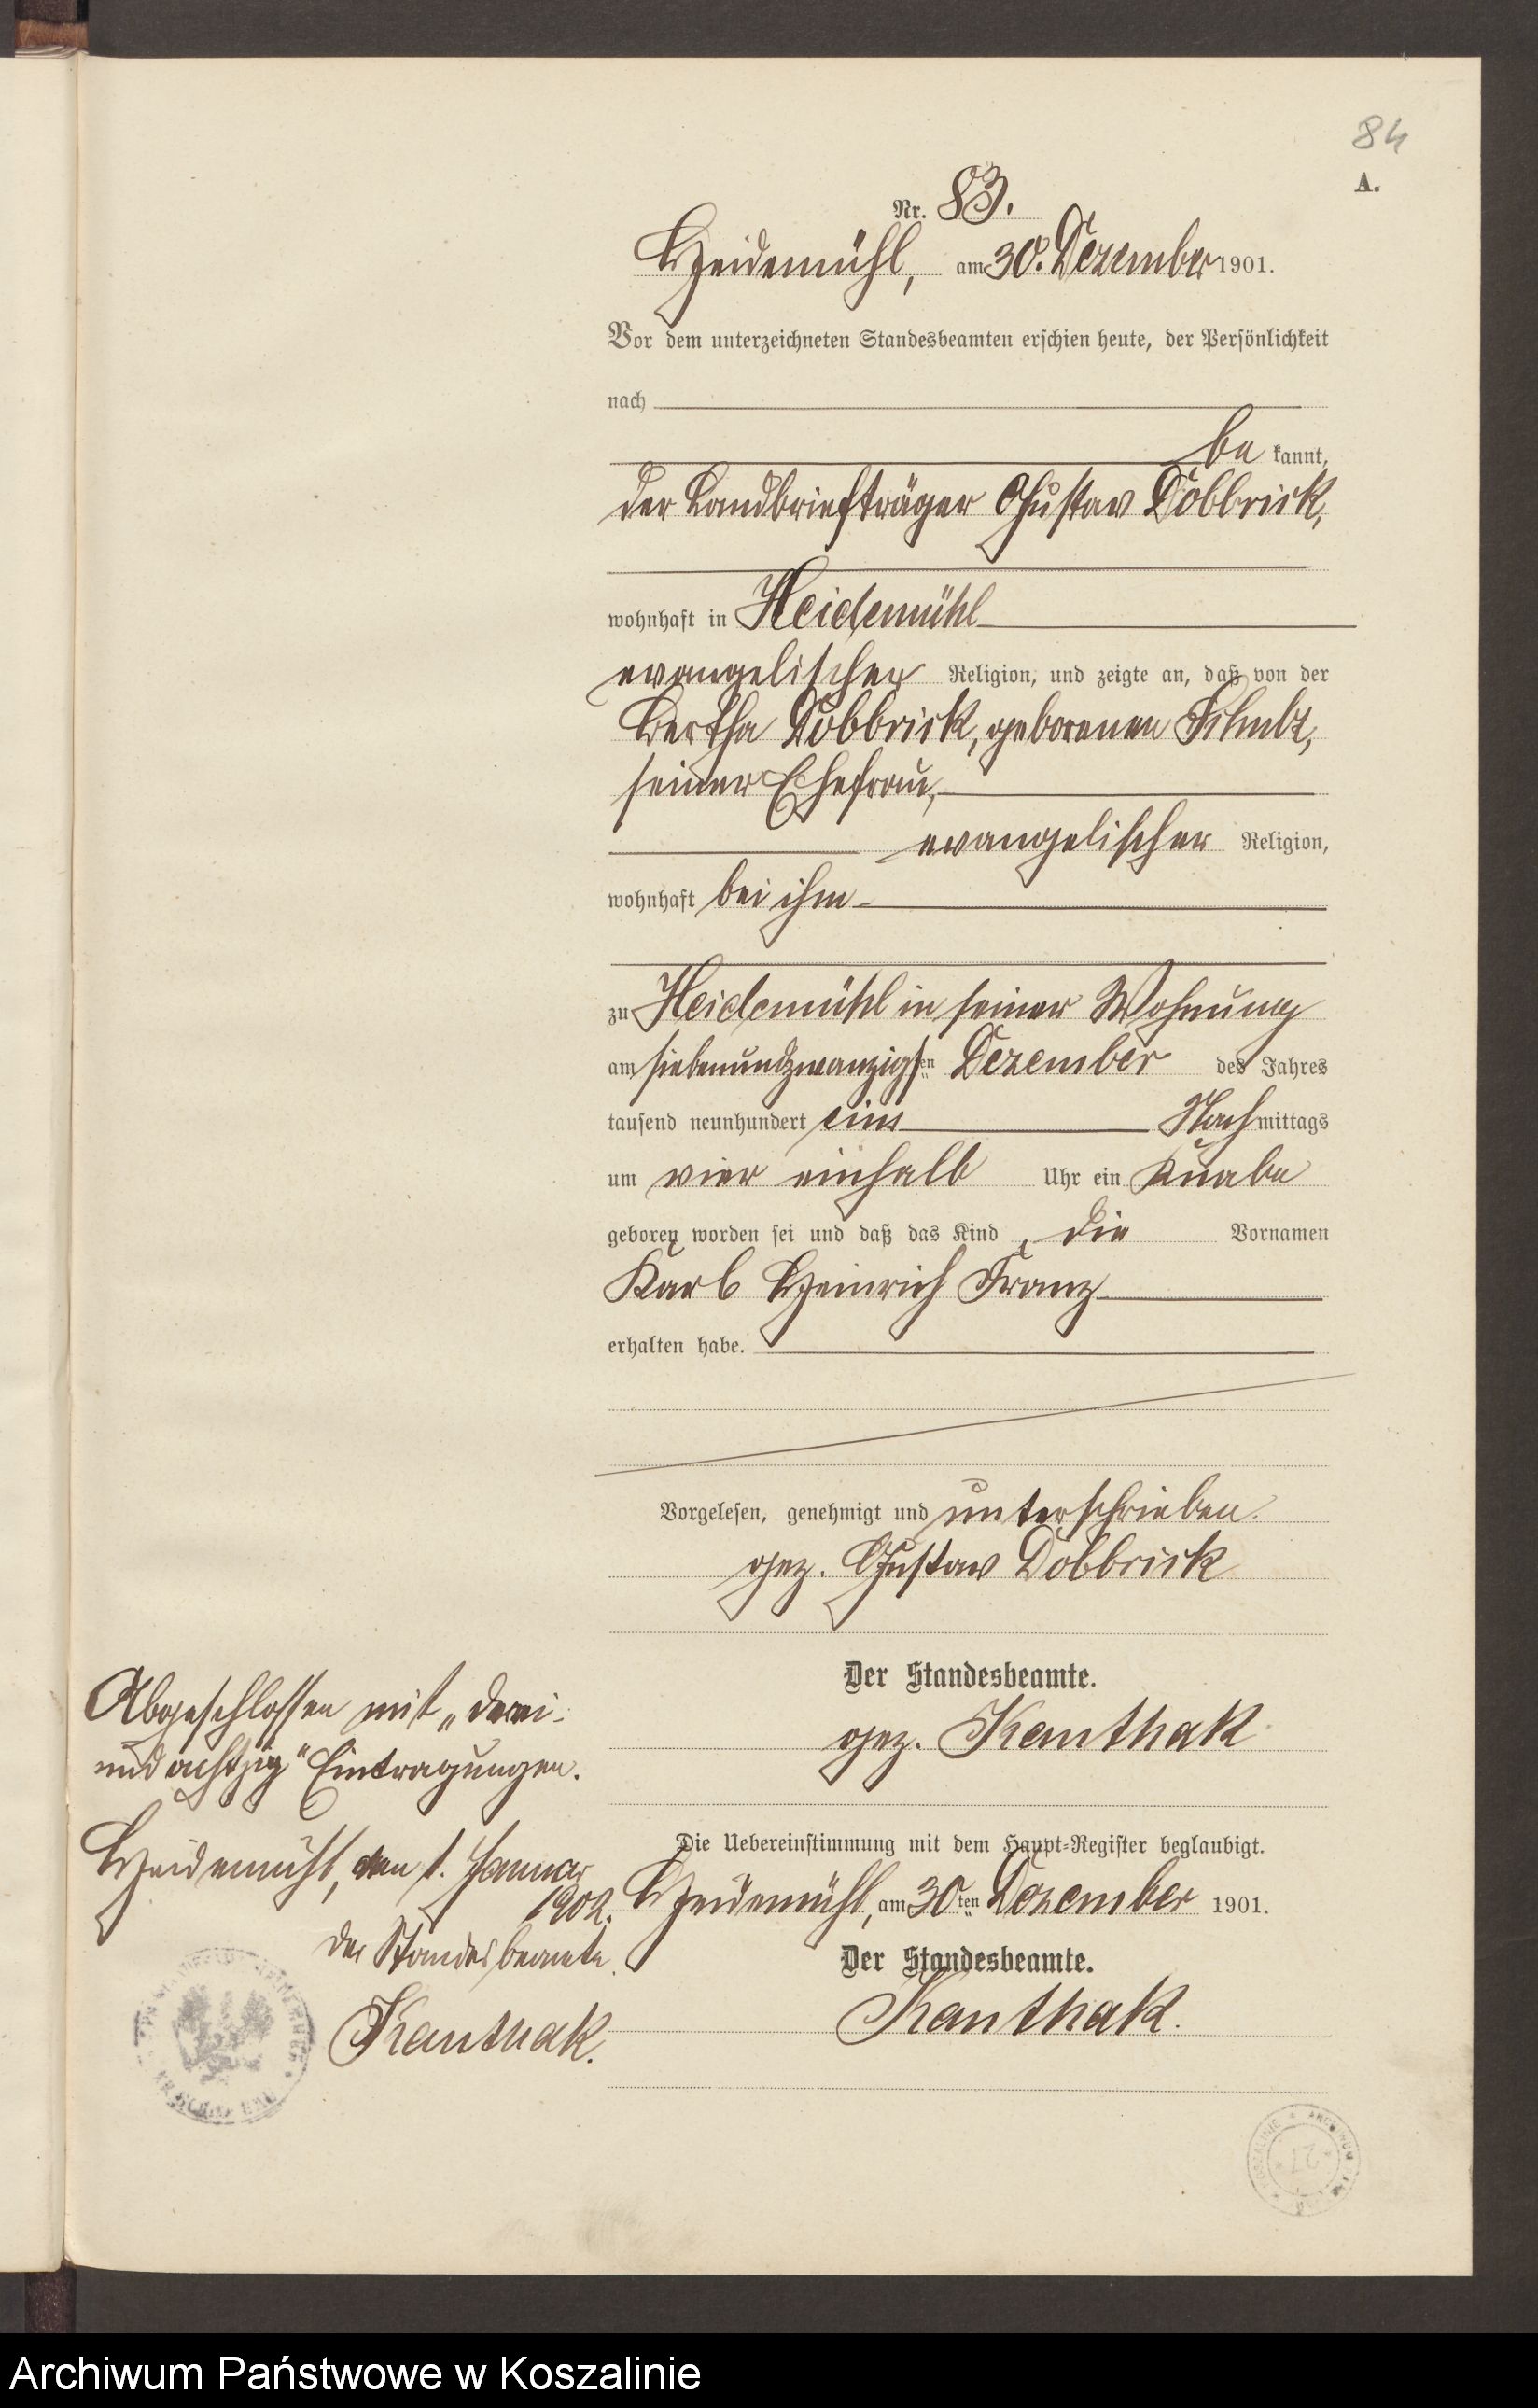 84
A.
Nr. 83.
Heidemühl, am 30. Dezember 1901.
Vor dem unterzeichneten Standesbeamten erschien heute, der Persönlichkeit
nach
be kannt,
der Landbriefträger Gustav Dobbrick,
wohnhaft in Heidemühl
evangelischer Religion, und zeigte an, daß von der
Bertha Dobbrick, geborenen
seiner Ehefrau,
evangelischer Religion,
wohnhaft bei ihm
zu Heidemühl in seiner Wohnung
am siebenundzwanzigsten Dezember des Jahres
tausend neunhundert eins Nachmittags
um vier einhalb Uhr ein Knabe
geboren worden sei und daß das Kind die Vornamen
Karl Heinrich Franz
erhalten habe.
Vorgelesen, genehmigt und unterschrieben.
gez. Gustav Dobbrick
Der Standesbeamte.
gez. Kanthak
Die Uebereinstimmung mit dem Haupt-Register beglaubigt.
Heidemühl, am 30ten Dezember 1901.
Der Standesbeamte.
Kanthak.
Abgeschlossen mit „drei-
und achtzig" Eintragungen.
Heidemühl, den 1. Januar
1902.
Der Standesbeamte.
Kanthak.
27
Archiwum Państwowe w Koszalinie